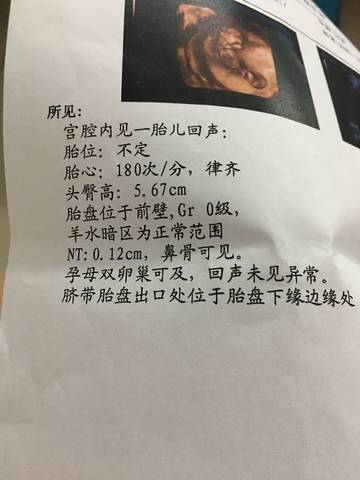 所见:
宫腔内见一胎儿回声:
胎位: 不定
胎心: 180次/分, 律齐
头臀高: 5.67cm
胎盘位于前壁,Gr 0级,
羊水暗区为正常范围
NT:0.12cm, 鼻骨可见。
孕母双卵巢可及, 回声未见异常。
脐带胎盘出口处位于胎盘下缘边缘处